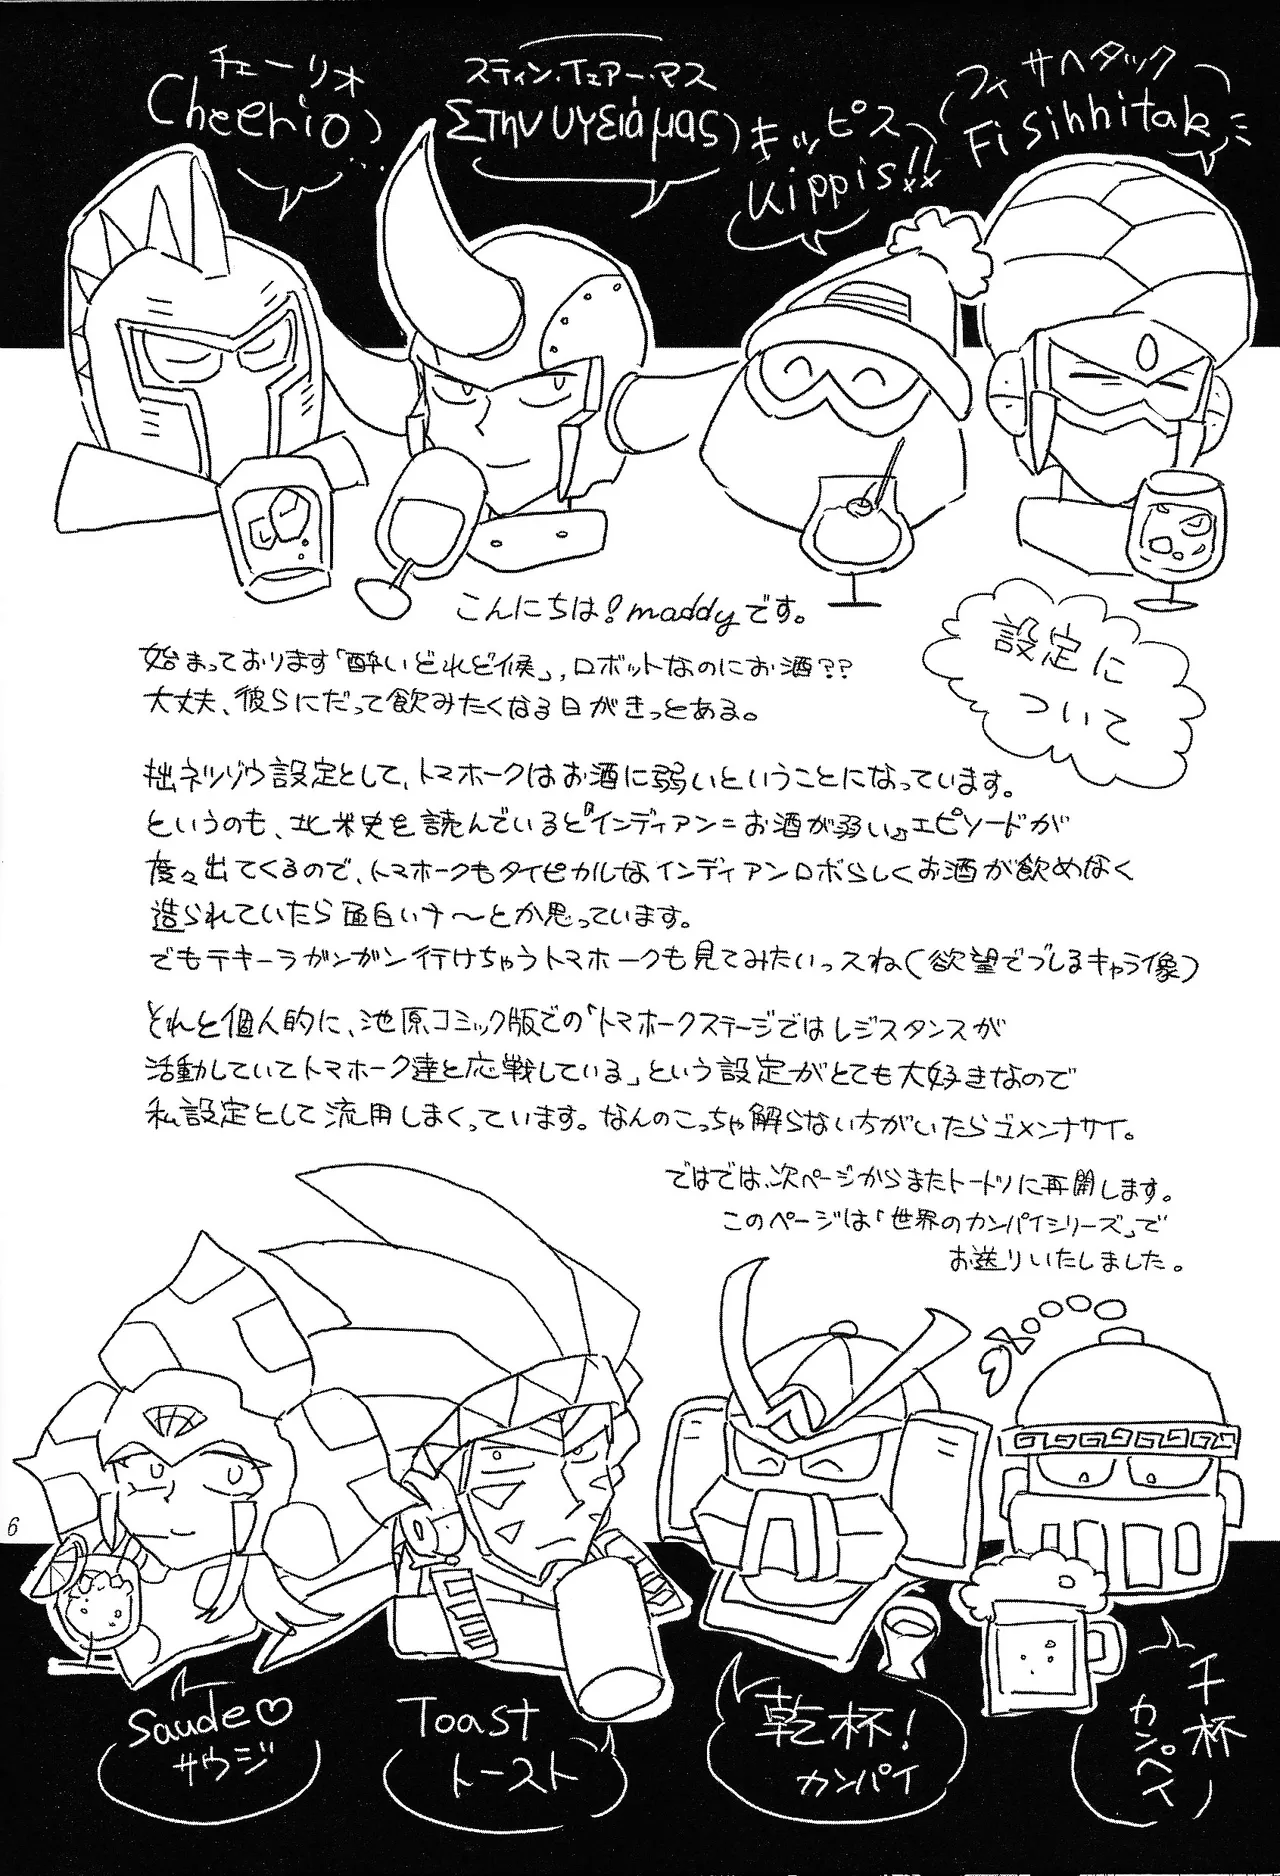 チェーリオ
Cheerio
スティン・イェアー・マス
Στην υγειά μας
キッピス
Kippis!!
フィ サハタック
Fi sihhitak
こんにちは!maddyです。
設定に
ついて
始まっております「酔いどれど候」,ロボットなのにお酒??
大丈夫、彼らにだって飲みたくなる日がきっとある。
拙ネツゾウ設定として,トマホークはお酒に弱いということになっています。
というのも、北米史を読んでいると『インディアン=お酒が弱い』エピソードが
度々出てくるので、トマホークもタイピカルなインディアンロボらしくお酒が飲めなく
造られていたら面白いナ〜とか思っています。
でもテキーラガンガン行けちゃうトマホークも見てみたいっスね(欲望でブレるキャラ像)
それと個人的に、池原コミック版での「トマホークステージではレジスタンスが
活動していてトマホーク達と応戦している」という設定がとても大好きなので
私設定として流用しまくっています。なんのこっちゃ解らない方がいたらゴメンナサイ。
ではでは、次ページからまたトードリに再開します。
このページは「世界のカンパイシリーズ」で
お送りいたしました。
6
Saude♡
サウジ
Toast
トースト
乾杯!
カンパイ
干杯
カンペイ